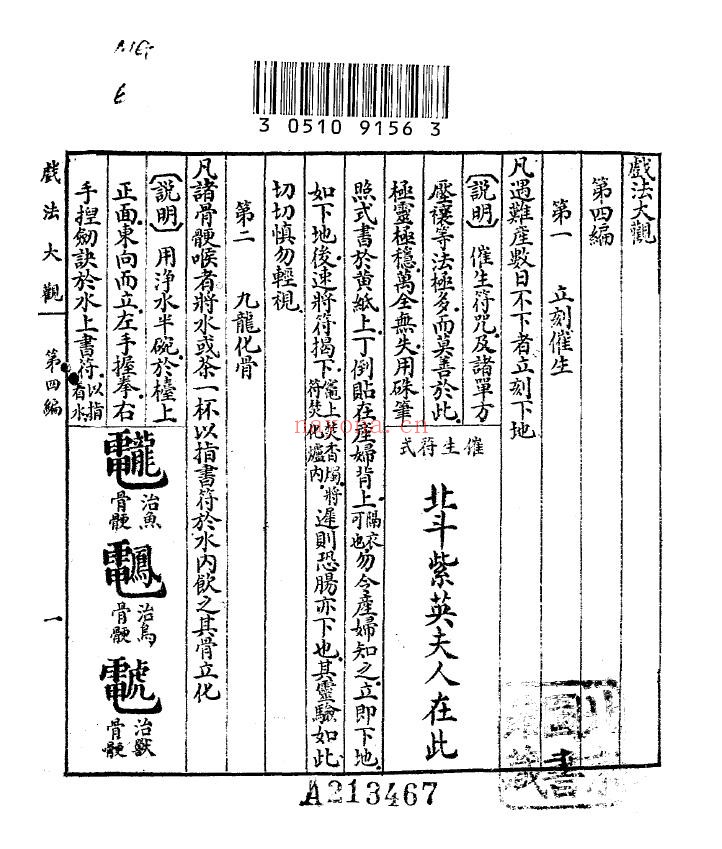 3 0510 9156 3
戲法大觀
第四編
第一 立刻催生
凡遇難產數日不下者立刻下地
〔説明〕催生符咒及諸單方
壓禳等法極多.而莫善於此.
極靈極穩.萬全無失.用硃筆
催生符式
北斗紫英夫人在此
照式書於黃紙上.丁倒貼在產婦背上.隔衣可也.勿令產婦知之.立即下地.
如下地後.速將符揭下.竈上香燭.將符焚化爐內.遲則恐腸亦下也.其靈驗如此.
切切慎勿輕視.
第二 九龍化骨
凡諸骨骾喉者將水或茶一杯以指書符於水內飲之其骨立化
〔説明〕用淨水半碗.於檯上
正面.東向而立.左手握拳.右
手揑劒訣.於水上書符.以指有水
治魚骨骾
治鳥骨骾
治獸骨骾
戲法大觀 第四編 一
圖書
藏
A213467
nayona.cn